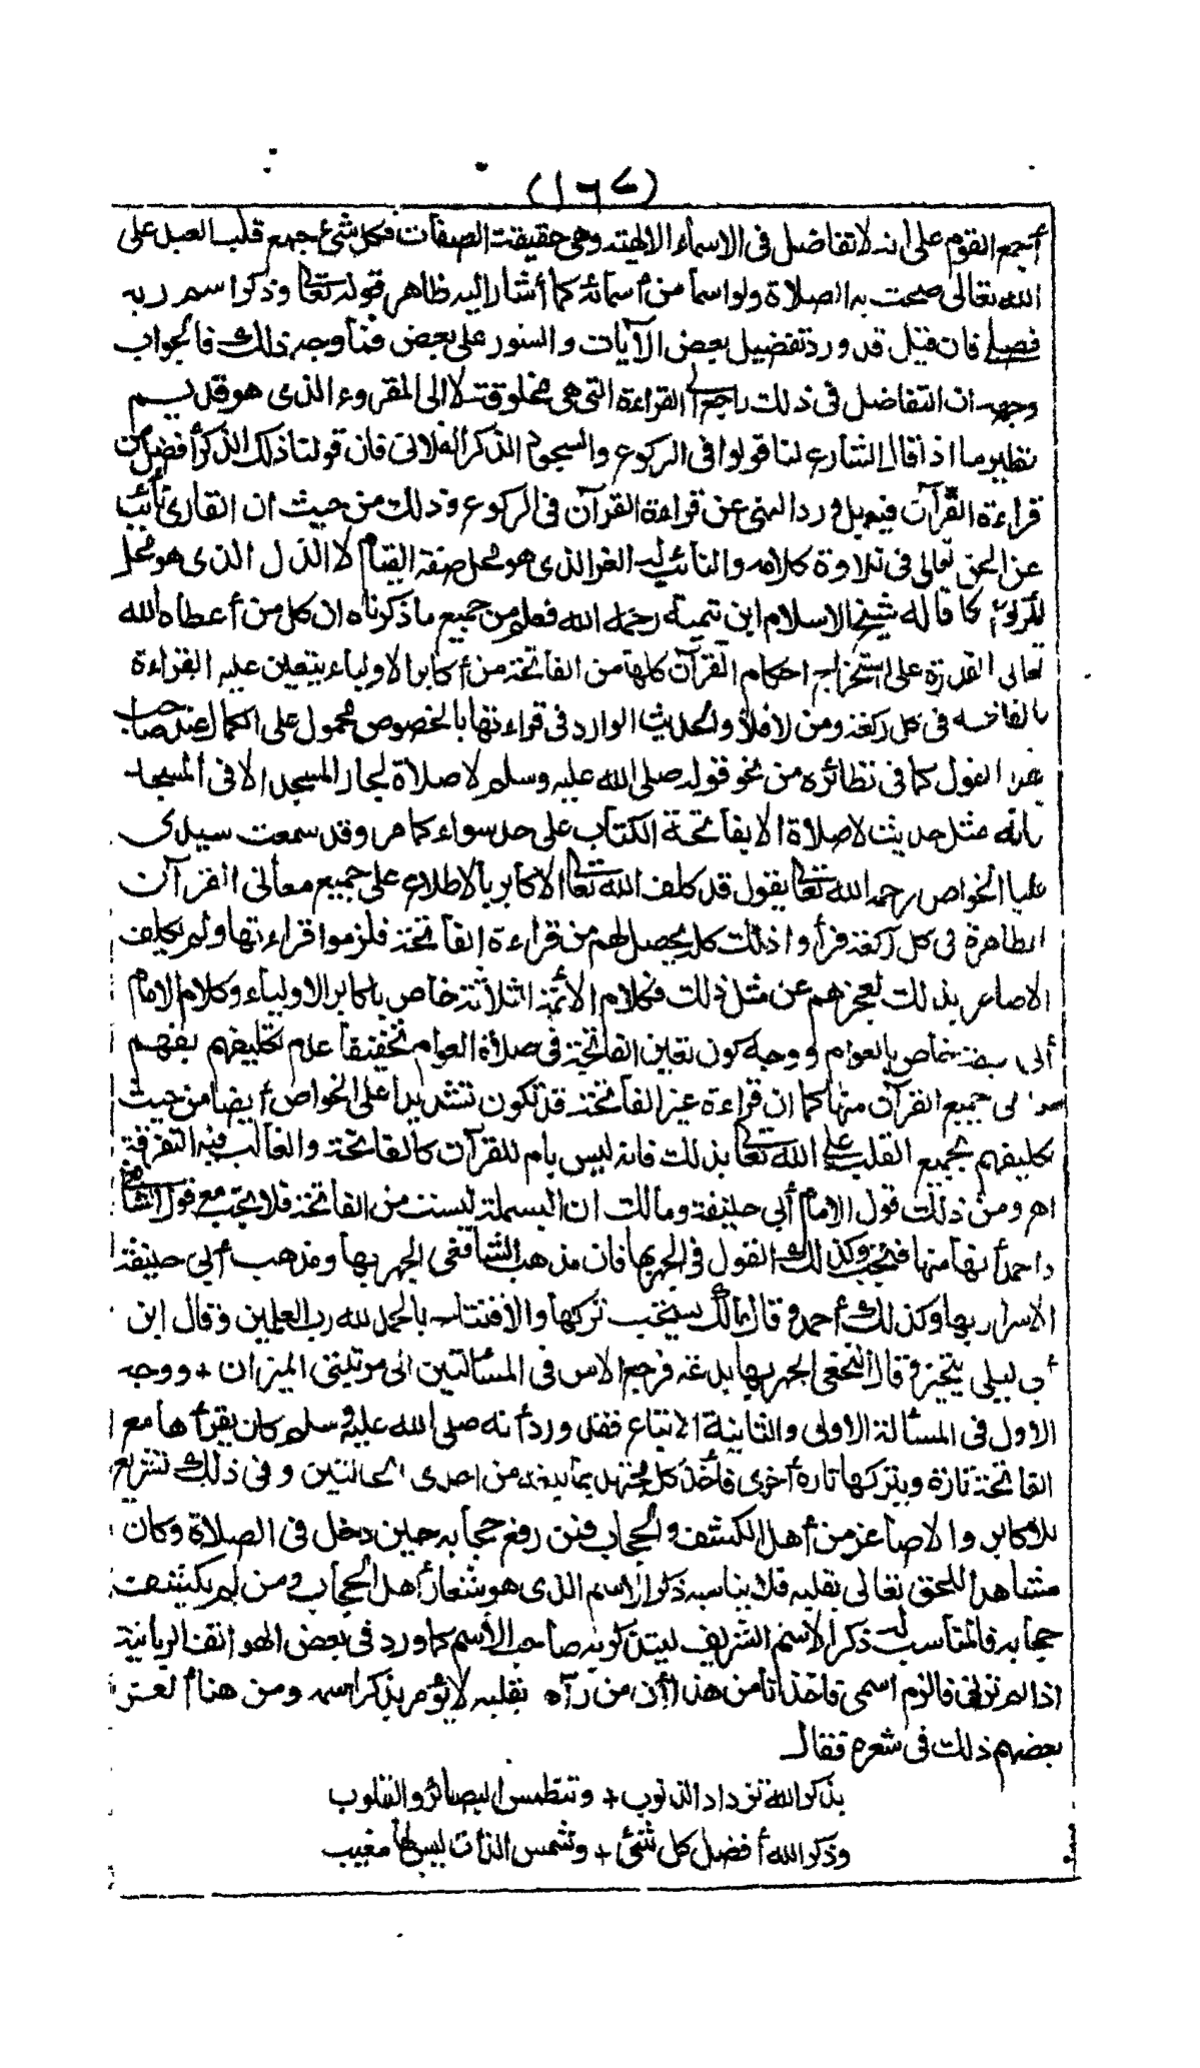 (١٦٧)
أجمع القوم على أنه لا تفاضل في الاسماء الالهية وهي حقيقة الصفات فكل شئ جمع قلب العبد على
الله تعالى صحت به الصلاة ولو اسما من أسمائه كما أشار اليه ظاهر قوله تعالى وذكر اسم ربه
فصلى فان قيل قد ورد تفضيل بعض الآيات والسور على بعض فما وجه ذلك فالجواب
وجهه ان التفاضل في ذلك راجع الى القراءة التي هي مخلوقة لا الى المقروء الذي هو قديم
نظير ما اذا قال الشارع لنا قولوا في الركوع والسجود الذكر الفلاني فان قولنا ذلك الذكر أفضل من
قراءة القرآن فيه بل ورد النهي عن قراءة القرآن في الركوع وذلك من حيث ان القارئ نائب
عن الحق تعالى في تلاوة كلامه والنائب له العز الذي هو محل صفة القيام لا الذل الذي هو محل
الركوع كما قاله شيخ الاسلام ابن تيمية رحمه الله فعلم من جميع ما ذكرناه ان كل من أعطاه الله
تعالى القدرة على استخراج احكام القرآن كلها من الفاتحة من أكابر الاولياء يتعين عليه القراءة
بالفاتحة في كل ركعة ومن لا فلا والحديث الوارد في قراءتها بالخصوص محمول على الكمال عند صاحب
هذا القول كما في نظائره من نحو قوله صلى الله عليه وسلم لا صلاة لجار المسجد الا في المسجد
فانه مثل حديث لا صلاة الا بفاتحة الكتاب على حد سواء كما مر وقد سمعت سيدي
عليا الخواص رحمه الله تعالى يقول قد كلف الله تعالى الاكابر بالاطلاع على جميع معاني القرآن
الظاهرة في كل ركعة فرأوا ذلك كله يحصل لهم من قراءة الفاتحة فلزموا قراءتها ولم يكلف
الاصاغر بذلك لعجزهم عن مثل ذلك فكلام الأئمة الثلاثة خاص باكابر الاولياء وكلام الامام
أبي حنيفة خاص بالعوام ووجه كون تعين الفاتحة في صلاة العوام تخفيفا عدم تكليفهم بفهم
معاني جميع القرآن منها كما ان قراءة غير الفاتحة قد تكون تشديدا على الخواص أيضا من حيث
تكليفهم بجميع القلب على الله تعالى بذلك فانه ليس بام للقرآن كالفاتحة والغالب فيه التفرقة
اهـ ومن ذلك قول الامام أبي حنيفة ومالك ان البسملة ليست من الفاتحة فلا تجب مع قول الشافعي
واحمد أنها منها فتجب وكذلك القول في الجهر بها فان مذهب الشافعي الجهر بها ومذهب أبي حنيفة
الاسرار بها وكذلك أحمد وقال مالك يستحب تركها والافتتاح بالحمد لله رب العلمين وقال ابن
أبي ليلى يتخير وقال النخعي الجهر بها بدعة فرجع الامر في المسألتين الى مرتبتي الميزان + ووجه
الاول في المسألة الأولى والثانية الاتباع فقد ورد أنه صلى الله عليه وسلم كان يقرأها مع
الفاتحة تارة ويتركها تارة أخرى فأخذ كل مجتهد بما بلغه من احدى الحالتين وفي ذلك تشريع
للأكابر والاصاغر من أهل الكشف والحجاب فمن رفع حجابه حين دخل في الصلاة وكان
مشاهدا للحق تعالى بقلبه فلا يناسبه ذكر الاسم الذي هو شعار أهل الحجاب ومن لم يكشف
حجابه فالمناسب له ذكر الاسم الشريف ليتذكر به صاحب الأسم كما ورد في بعض الهواتف الربانية
اذا لم ترني فالزم اسمي فاخذنا من هذا أن من رآه بقلبه لا يؤمر بذكر اسمه ومن هنا ألغز
بعضهم ذلك في شعره فقال
بذكر الله تزداد الذنوب + وتنطمس البصائر والقلوب
وذكر الله أفضل كل شئ + وشمس الذات ليس لها مغيب